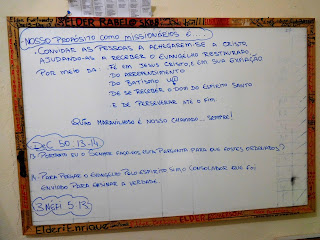 ELDER RABELO
NOSSO PROPÓSITO COMO MISSIONÁRIOS É...
CONVIDAR AS PESSOAS A ACHEGAREM-SE A CRISTO,
AJUDANDO-AS A RECEBER O EVANGELHO RESTAURADO,
POR MEIO DA FÉ EM JESUS CRISTO E EM SUA EXPIAÇÃO
DO ARREPENDIMENTO
DO BATISMO
DE SE RECEBER O DOM DO ESPÍRITO SANTO
E DE PERSEVERAR ATÉ O FIM.
QUÃO MARAVILHOSO É NOSSO CHAMADO... SEMPRE!
DeC 50:13-14
13 PORTANTO EU O SENHOR FAÇO-VOS ESTA PERGUNTA PARA QUE FOSTES ORDENADOS?
14 PARA PREGAR O EVANGELHO PELO ESPÍRITO SIM O CONSOLADOR QUE FOI
ENVIADO PARA ENSINAR A VERDADE.
3 NÉFI 5:13
Elder Enrique